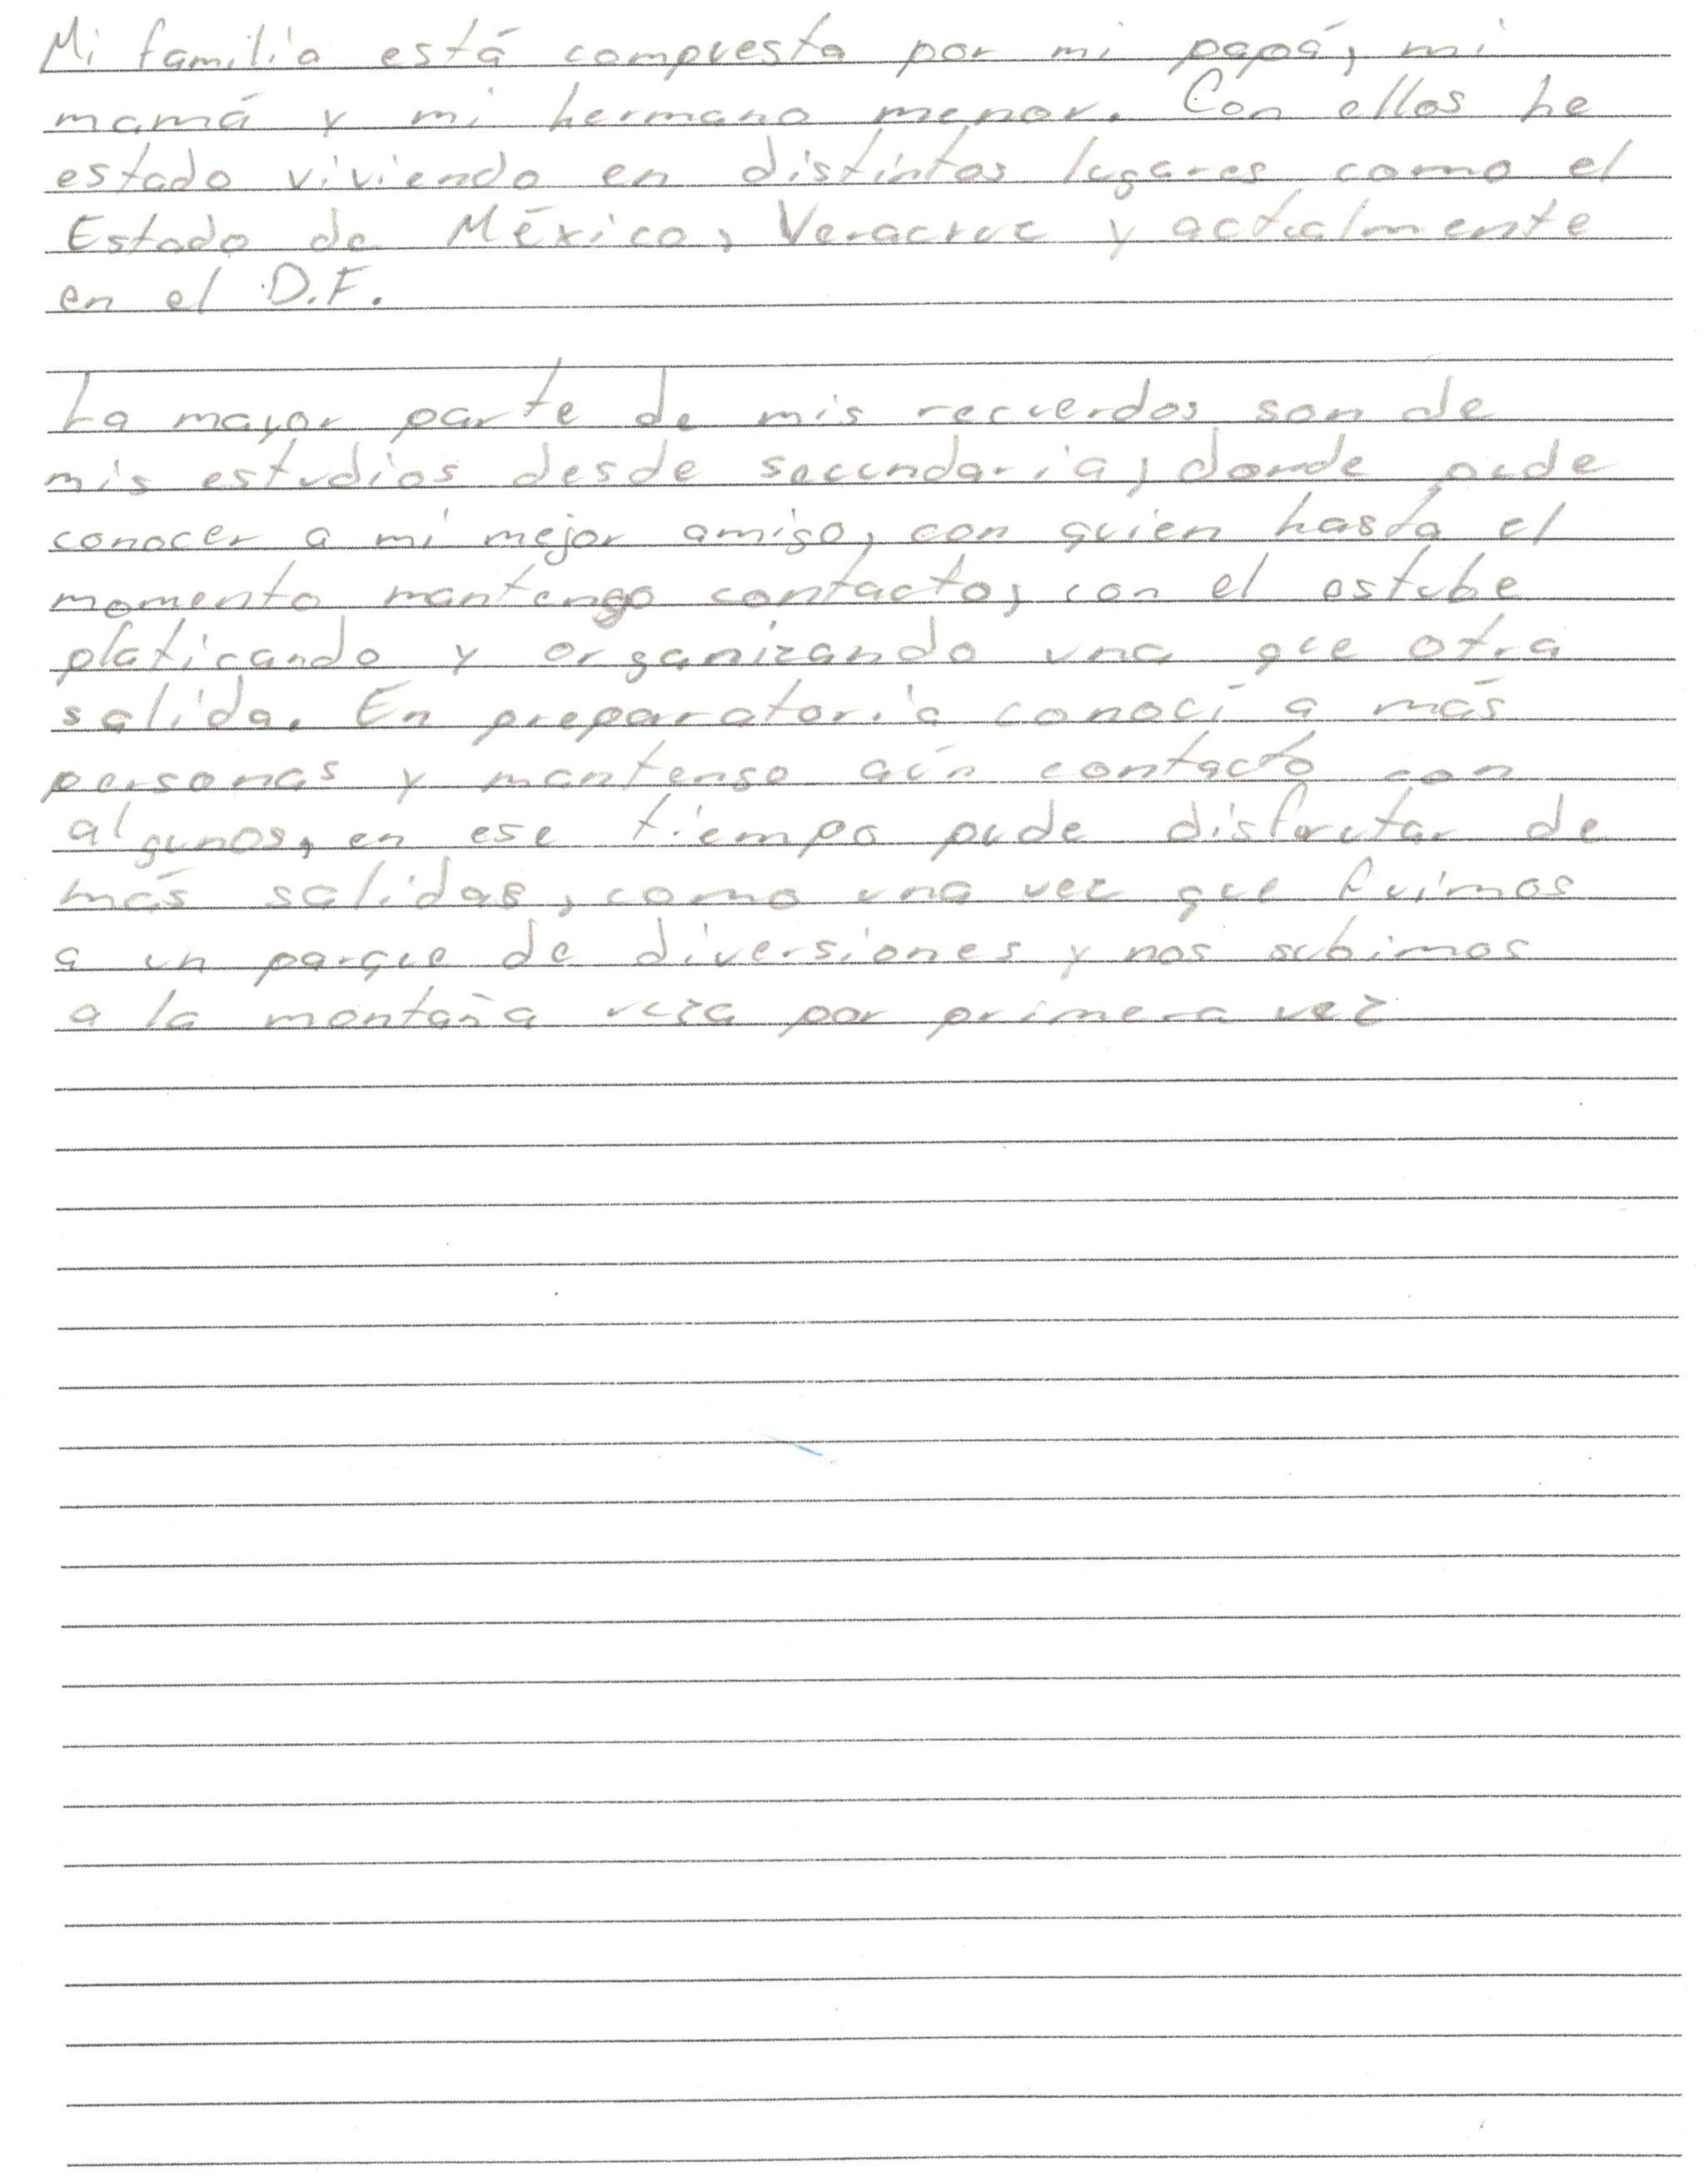 Mi familia está compuesta por mi papá, mi
mamá y mi hermano menor. Con ellos he
estado viviendo en distintos lugares como el
Estado de México, Veracruz y actualmente
en el D.F.
La mayor parte de mis recuerdos son de
mis estudios desde secundaria, donde pude
conocer a mi mejor amigo, con quien hasta el
momento mantengo contacto, con el estube
platicando y organizando una que otra
salida. En preparatoria conocí a más
personas y mantengo aún contacto con
algunos, en ese tiempo pude disfrutar de
más salidas, como una vez que fuimos
a un parque de diversiones y nos subimos
a la montaña rusa por primera vez